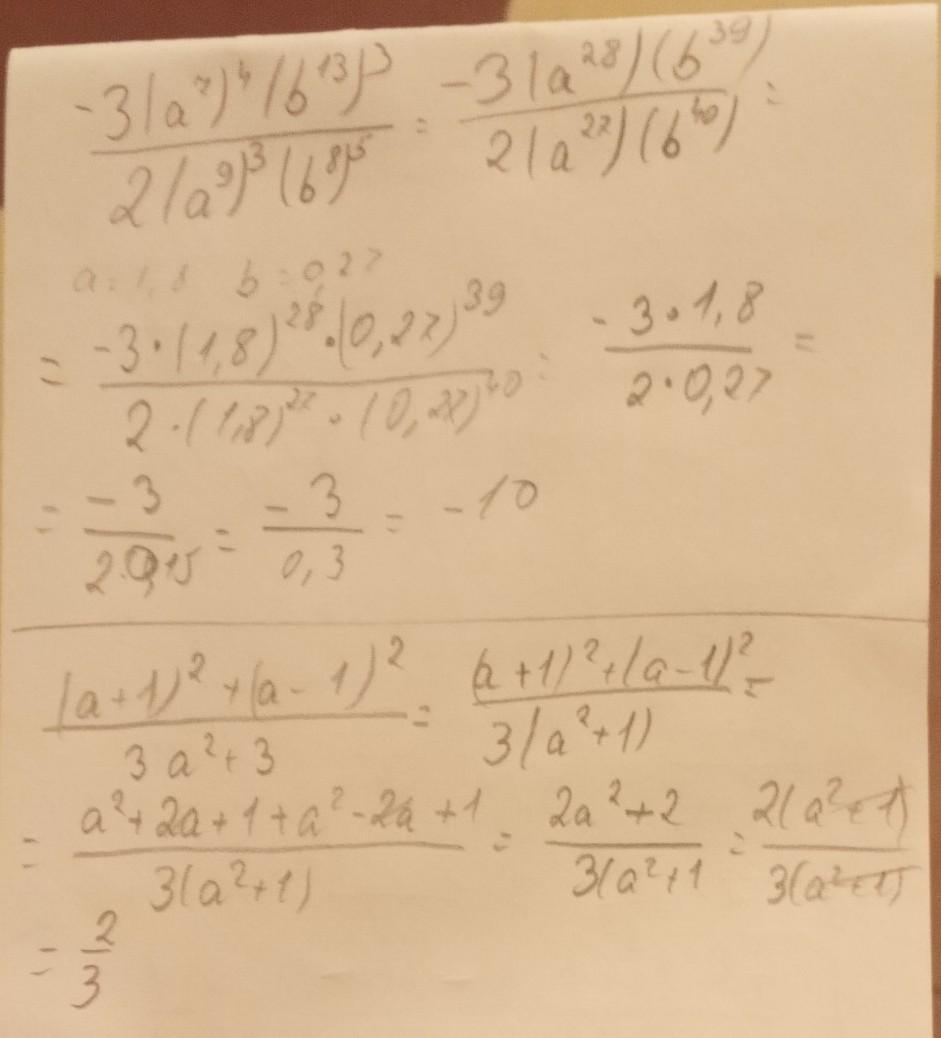 -3(a⁷)⁴(b¹³)³ / 2(a⁹)³(b⁸)⁵ = -3(a²⁸)(b³⁹) / 2(a²⁷)(b⁴⁰) =
a = 1,8 b = 0,27
= -3·(1,8)²⁸·(0,27)³⁹ / 2·(1,8)²⁷·(0,27)⁴⁰ = -3·1,8 / 2·0,27 =
= -3 / 2·0,15 = -3 / 0,3 = -10
(a+1)² + (a-1)² / 3a²+3 = (a+1)²+(a-1)² / 3(a²+1) =
= a²+2a+1+a²-2a+1 / 3(a²+1) = 2a²+2 / 3(a²+1 = 2(a²+1) / 3(a²+1)
= 2/3